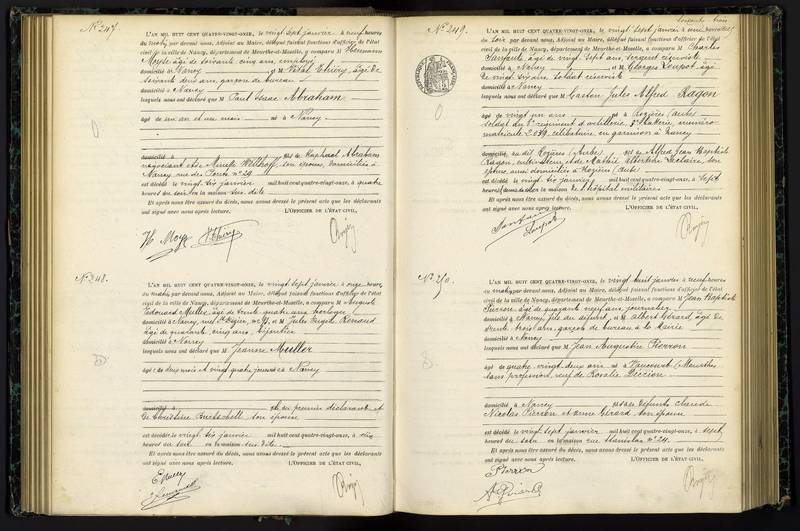 N° 247
L'AN MIL HUIT CENT QUATRE-VINGT-ONZE, le vingt sept janvier à neuf heures
du matin par devant nous, Adjoint au Maire, délégué faisant fonctions d'officier de l'état
civil de la ville de Nancy, département de Meurthe-et-Moselle, a comparu M Hermann
Moyse âgé de soixante cinq ans, employé
domicilié à Nancy et M Vital Thiéry, âgé de
soixante deux ans, garçon de bureau
domicilié à Nancy
lesquels nous ont déclaré que M Paul Isaac Abraham
âgé de un an et un mois né à Nancy
domicilié à fils de Raphaël Abraham
négociant et de Minette Wellhoff, son épouse, domiciliés à
Nancy rue des Ponts n° 29
est décédé le vingt six janvier mil huit cent quatre-vingt-onze, à quatre
heures du soir en la maison sus dite
Et après nous être assuré du décès, nous avons dressé le présent acte que les déclarants
ont signé avec nous après lecture. L'OFFICIER DE L'ÉTAT CIVIL,
H Moyse VThiéry
N° 248.
L'AN MIL HUIT CENT QUATRE-VINGT-ONZE, le vingt sept janvier à onze heures
du matin par devant nous, Adjoint au Maire, délégué faisant fonctions d'officier de l'état
civil de la ville de Nancy, département de Meurthe-et-Moselle, a comparu M Auguste
Edouard Muller, âgé de trente quatre ans, horloger
domicilié à Nancy, et M Jules Renaud
âgé de quarante cinq ans, bijoutier
domicilié à Nancy
lesquels nous ont déclaré que M Jeanne Muller
âgée de deux mois et vingt quatre jours née à Nancy
domicilié à fille du premier déclarant et
de Christine son épouse
est décédée le vingt six janvier mil huit cent quatre-vingt-onze, à cinq
heures du soir en la maison sus dite
Et après nous être assuré du décès, nous avons dressé le présent acte que les déclarants
ont signé avec nous après lecture. L'OFFICIER DE L'ÉTAT CIVIL,
soixante trois
N° 249.
L'AN MIL HUIT CENT QUATRE-VINGT-ONZE, le vingt sept janvier à une heure
du soir par devant nous, Adjoint au Maire, délégué faisant fonctions d'officier de l'état
civil de la ville de Nancy, département de Meurthe-et-Moselle, a comparu M Charles
âgé de vingt sept ans, sergent réserviste
domicilié à Nancy et M Georges Loupot, âgé
de vingt six ans, soldat réserviste
domicilié à Nancy
lesquels nous ont déclaré que M Gaston Jules Alfred Ragon
âgé de vingt un ans né à Rozières (Aube)
soldat du 8e régiment d'artillerie, 7e batterie, numéro
matricule 2089, célibataire, en garnison à Nancy
domicilié au dit Rozières (Aube) fils de Alfred Jean Baptiste
Ragon, cultivateur, et de Mathil Albertine Leclaire, son
épouse, aussi domiciliés à Rozières (Aube)
est décédé le vingt six janvier mil huit cent quatre-vingt-onze, à sept
heures du soir en la maison de l'hôpital militaire
Et après nous être assuré du décès, nous avons dressé le présent acte que les déclarants
ont signé avec nous après lecture. L'OFFICIER DE L'ÉTAT CIVIL,
Loupot
N° 250
L'AN MIL HUIT CENT QUATRE-VINGT-ONZE, le vingt huit janvier à neuf heures
du matin par devant nous, Adjoint au Maire, délégué faisant fonctions d'officier de l'état
civil de la ville de Nancy, département de Meurthe-et-Moselle, a comparu M Jean Baptiste
Pierron, âgé de quarante neuf ans, journalier
domicilié à Nancy, fils du défunt, et M Albert Gérard, âgé de
trente trois ans, garçon de bureau à la Mairie
domicilié à Nancy
lesquels nous ont déclaré que M Jean Augustin Pierron
âgé de quatre vingt deux ans né à Vaucourt (Meurthe)
sans profession, veuf de Rosalie
domicilié à Nancy fils de défunts Claude
Nicolas Pierron et Anne Gérard son épouse
est décédé le vingt sept janvier mil huit cent quatre-vingt-onze, à sept
heures du soir en la maison rue Stanislas n° 24.
Et après nous être assuré du décès, nous avons dressé le présent acte que les déclarants
ont signé avec nous après lecture. L'OFFICIER DE L'ÉTAT CIVIL,
Pierron
A Gérard